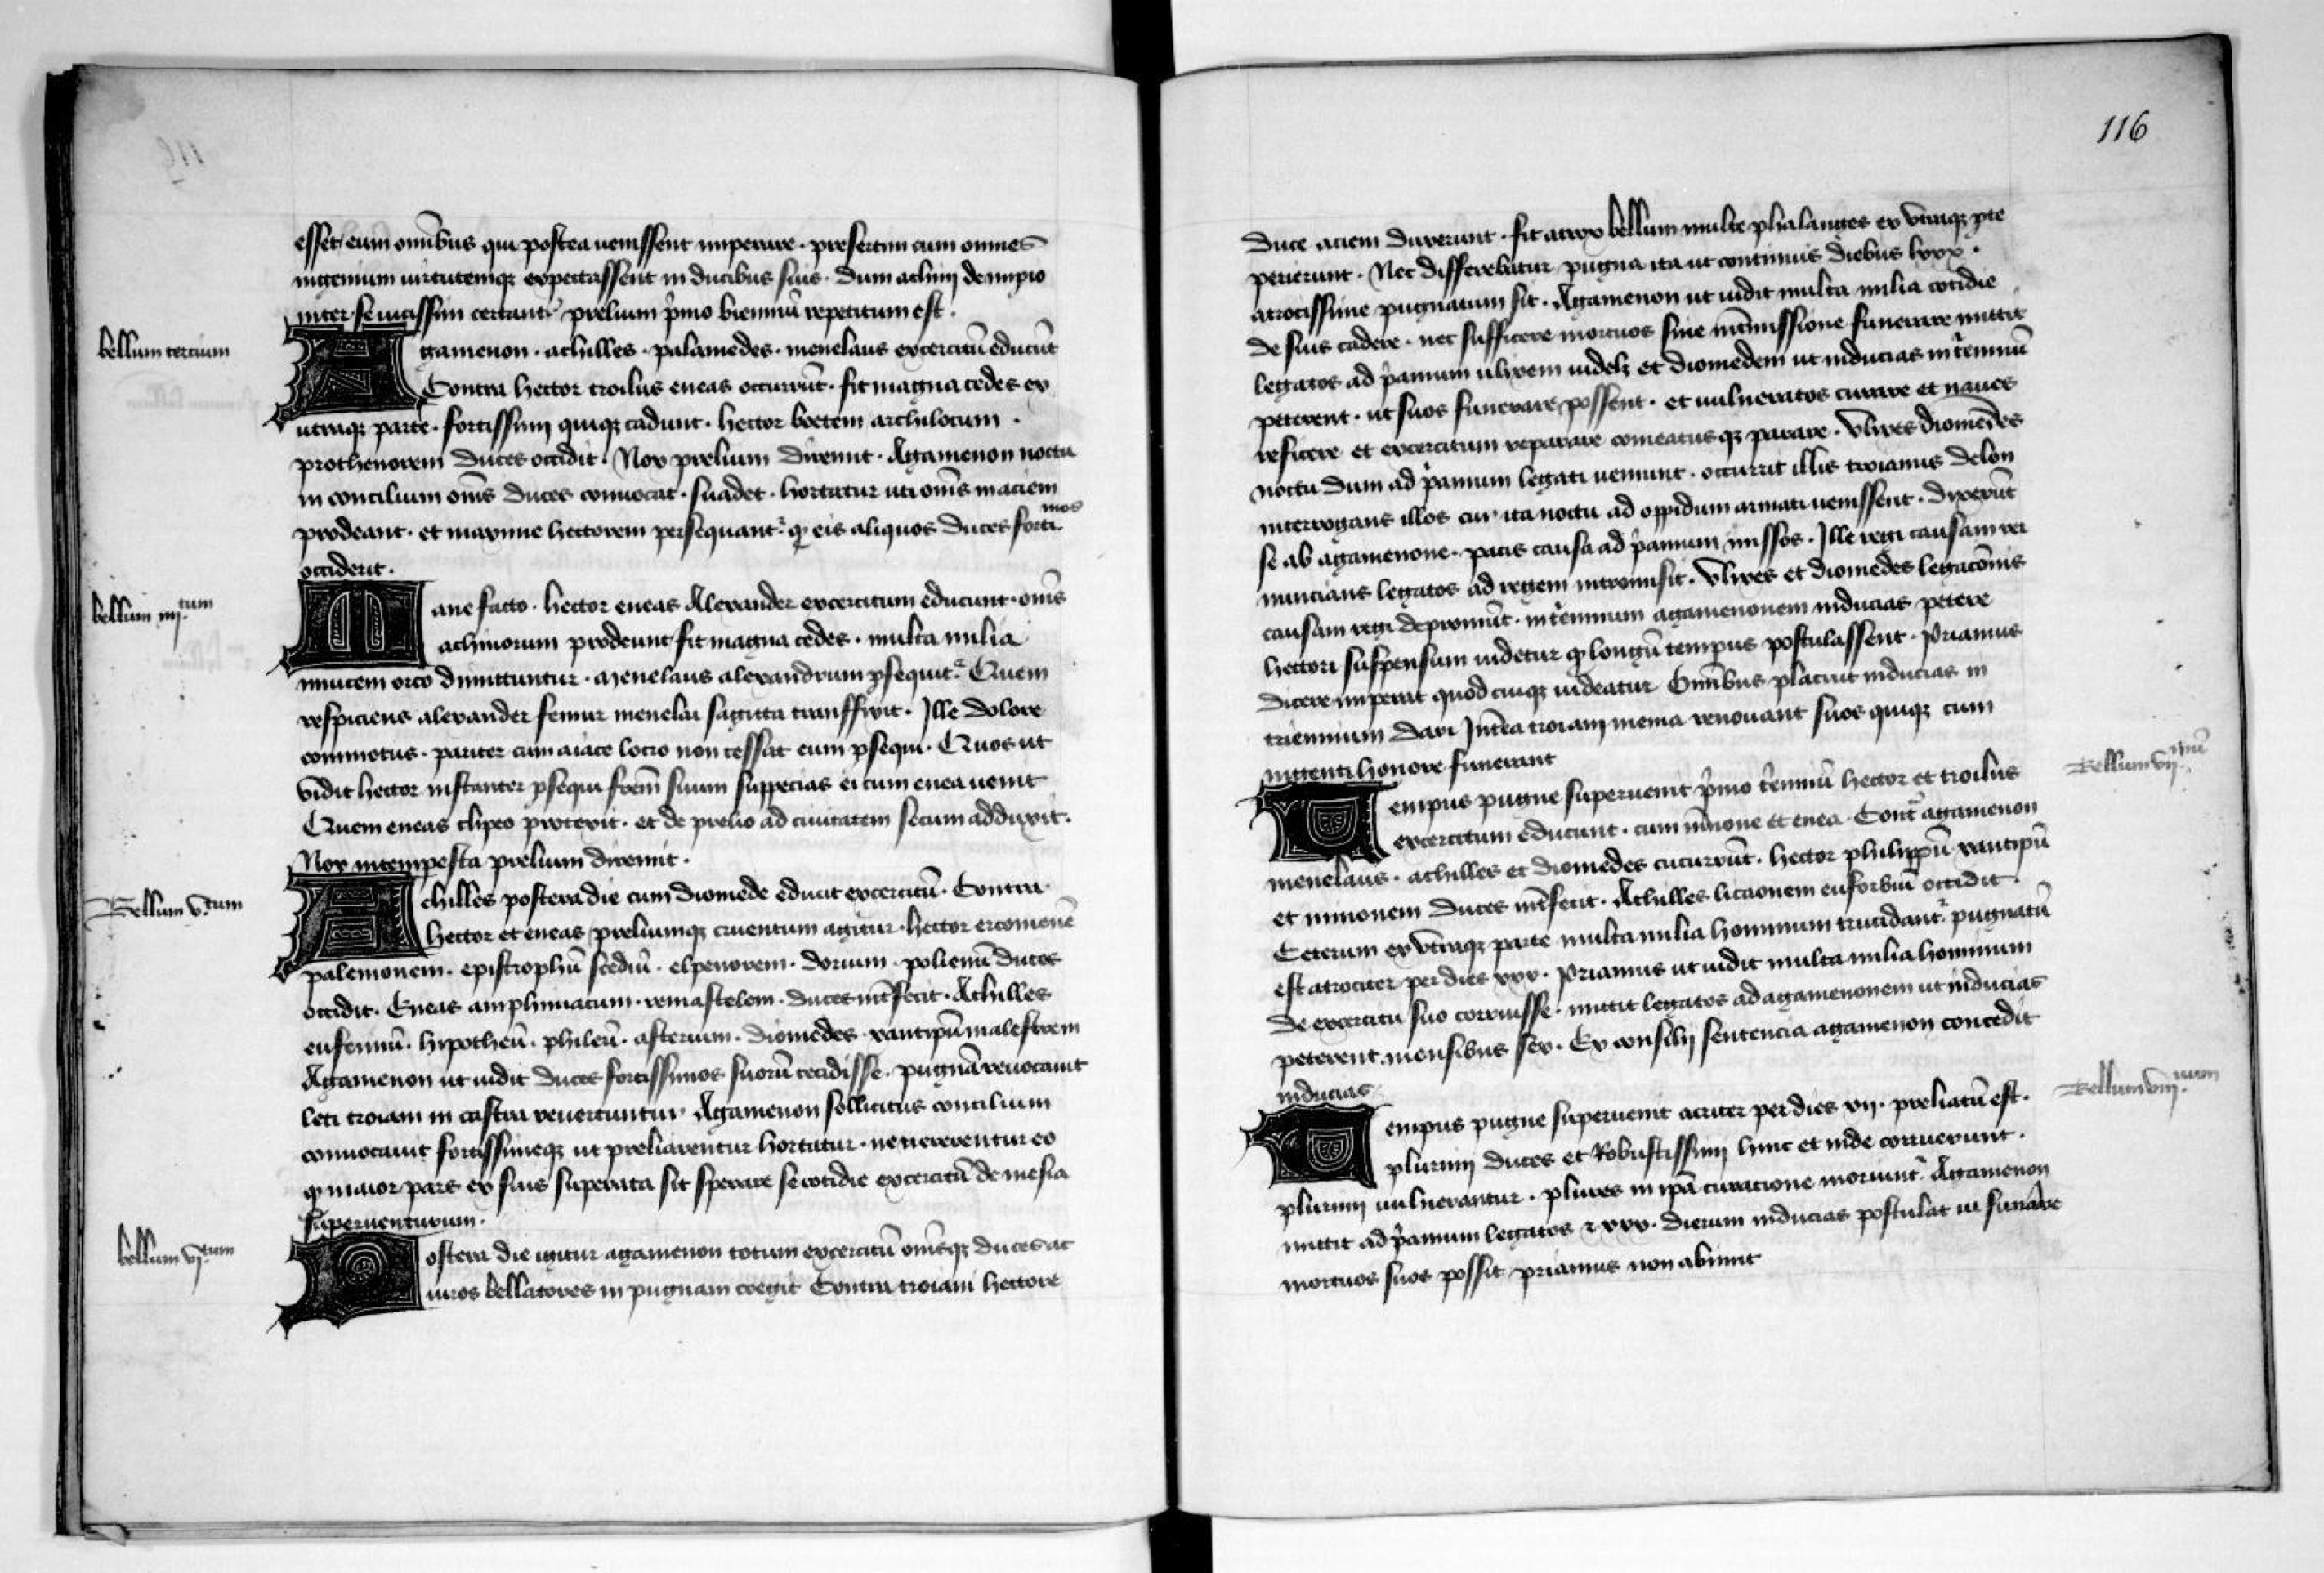 esset eum omībus qui postea uenissent imperare · presertim cum omnes
ingenium uirtutemqꝫ expectassent in ducibus suis · dum achiui de impio
inter se uicissim certantᷣ prelium p̾mo bienniū repetitum est ·
bellum tercium
Agamenon · achilles · palamedes · menelaus excercitū educūt
Contra hector troilus eneas occurrūt · fit magna cedes ex
utraqꝫ parte · fortissimi quiqꝫ cadunt · hector boetem archilocum ·
prothenorem duces occidit · Nox prelium diremit · Agamenon noctu
in concilium om̄s duces conuocat · suadet · hortatur uti om̄s in aciem
prodeant · et maxime hectorem persequantᷣ qꝫ eis aliquos duces fortimos
occiderit ·
bellum iiij.tum
Mane facto · hector eneas Alexander excercitum educunt · om̄s
achiuorum prodeunt fit magna cedes · multa milia
inuicem orco dimittuntur · Menelaus alexandrum ꝑsequitᷣ Quem
respiciens alexander femur menelai sagitta transfixit · Ille dolore
commotus · pariter cum aiace locro non cessat eum ꝑsequi · Quos ut
vidit hector instanter ꝑsequi frēm suum suppecias ei cum enea uenit
Quem eneas clipeo protexit · et de prelio ad ciuitatem secum adduxit ·
Nox intempesta prelium diremit ·
Bellum v.tum
Achilles postera die cum diomede eduxit excercitū · Contra
hector et eneas preliumqꝫ cruentum agitur · hector ercomenē
palemonem · epistrophū scediū · elpenorem · dorium · polienū duces
occidit · Eneas amphimacum · remastelem · duces int̄fecit · Achilles
eufemiū · hipotheū · phileū · asterium · diomedes · xantipū malestrem
Agamenon ut uidit duces fortissimos suorū cecidisse · pugnā reuocauit
leti troiam in castra reuertuntur Agamenon sollicitus concilium
conuocauit fortissimeqꝫ ut preliarentur hortatur · ne uererentur eo
qꝫ maior pars ex suis superata sit sperare se cotidie excercitū de mesia
superuenturum ·
bellum vj.tum
Postera die igitur agamenon totum excercitū om̄sqꝫ duces ac
uiros bellatores in pugnam coegit Contra troiani hectore
116
duce aciem duxerunt · fit atrox bellum multe phalanges ex vtraqꝫ ꝑte
perierunt · Nec differebatur pugna ita ut continuis diebus lxxx ·
atrocissime pugnatum sit · Agamenon ut uidit multa milia cotidie
de suis cadere · nec sufficere mortuos sine int̄missione funerare mittit
legatos ad p̾amum ulixem uidelꝫ et diomedem ut inducias in t̾ienniū
peterent · ut suos funerare possent · et uulneratos curare et naues
reficere et excercitum reparare comeatusqꝫ parare · Vlixes diomēdes
noctu dum ad p̾amum legati ueniunt · occurrit illis troianus delon
interrogans illos cur ita noctu ad oppidum armati uenissent · dixerūt
se ab agamenone · pacis causa ad p̾amum missos · Ille regi causam rei
nuncians legatos ad regem intromisit · Vlixes et diomedes legacōnis
causam regi depromūt · in t̾iennium agamenonem inducias petere
hectori suspensum uidetur qꝫ longū tempus postulassent · Priamus
dicere imperat quod cuiqꝫ uideatur Omībus placuit inducias in
triennium dari Int̄ea troiani menia renouant suos quiqꝫ cum
ingenti honore funerant
Bellum vij.imū
Tempus pugne superuenit p̾mo t̾ienniū hector et troilus
excercitum educunt · cum m̄none et enea · Contᷓ agamenon
menelaus · achilles et diomedes cucurrūt · hector philippū xantipū
et minonem duces int̄fecit · Achilles licaonem euforbiū occidit ·
Ceterum ex vtraqꝫ parte multa milia hominum trucidantᷣ pugnatū
est atrociter per dies xxx · Priamus ut uidit multa milia hominum
de excercitu suo corruisse · mittit legatos ad agamenonem ut inducias
peterent mensibus sex · Ex consilij sentencia agamenon concedit
inducias
Bellum viij.uum
Tempus pugne superuenit acriter per dies xij · preliatū est ·
plurimi duces et Robustissimi hinc et inde corruerunt ·
plurimi uulnerantur · plures in ip̄a curacione moriuntᷣ Agamenon
mittit ad p̾amum legatos ⁊ xxx · dierum inducias postulat ut funāre
mortuos suos possit priamus non abiuit